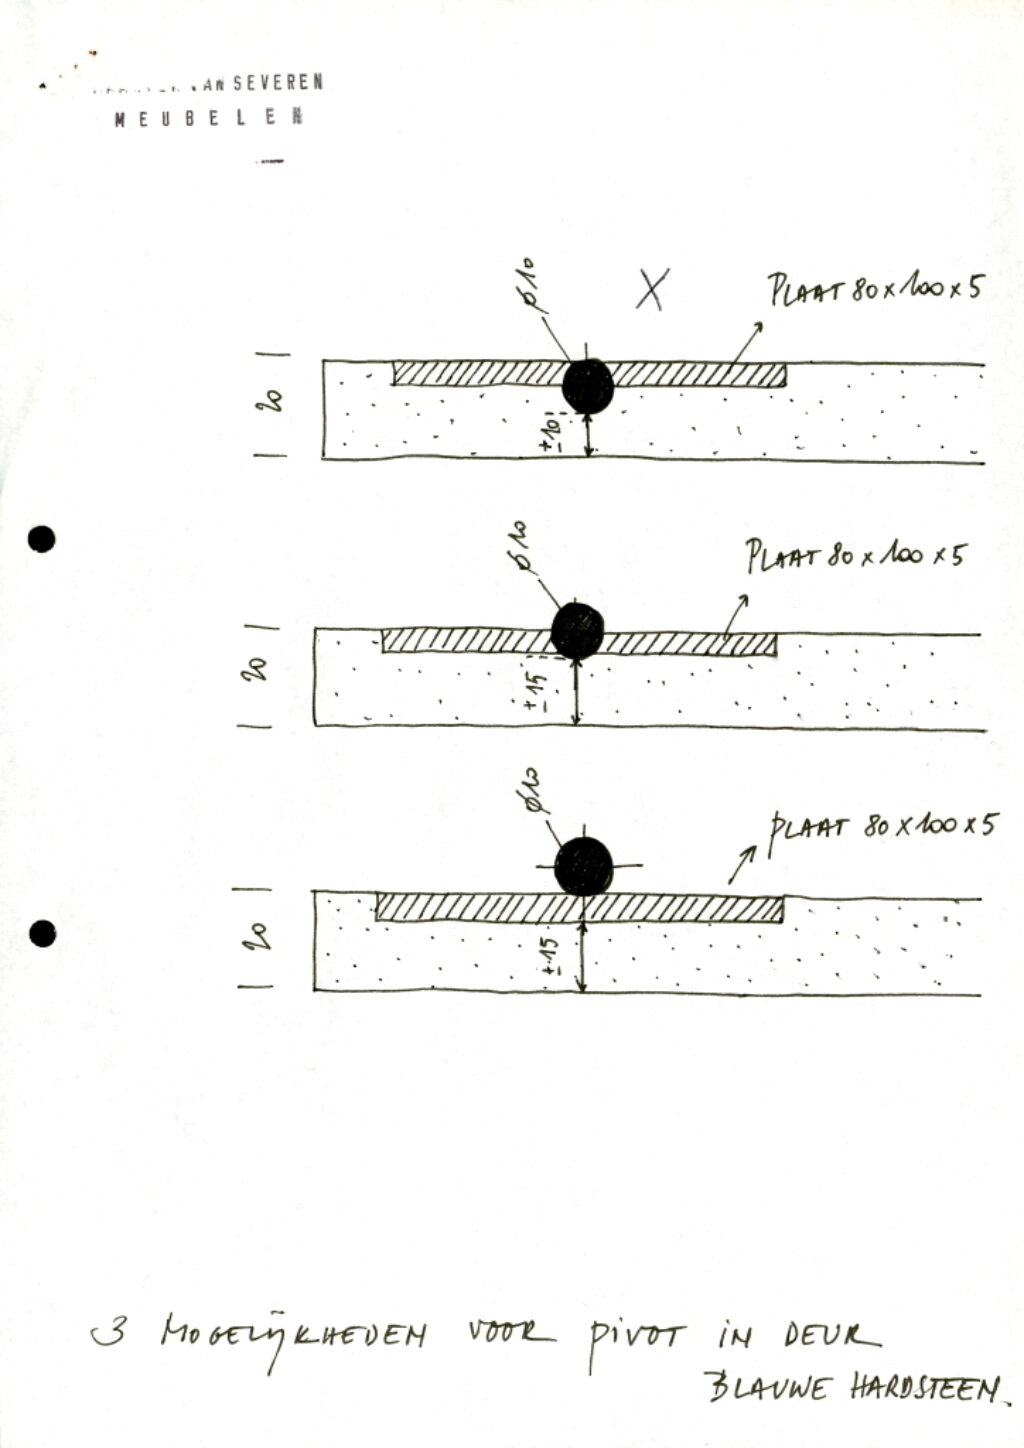 VAN SEVEREN
MEUBELEN
Ø10
X
PLAAT 80 x 100 x 5
20
±10
Ø10
PLAAT 80 x 100 x 5
20
±15
Ø10
PLAAT 80 x 100 x 5
20
±15
3 MOGELIJKHEDEN VOOR PIVOT IN DEUR
BLAUWE HARDSTEEN.